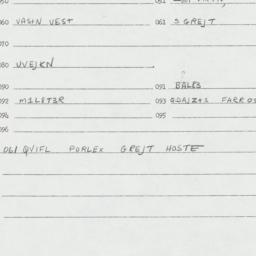 060 VASIN VEST 061 S GREJT
070
080 UVEJKN
090 091 BALRS
092 MILET3R 093 FARROS
094 095
096
061 QVIFL PORLEX GREJT HOSTE